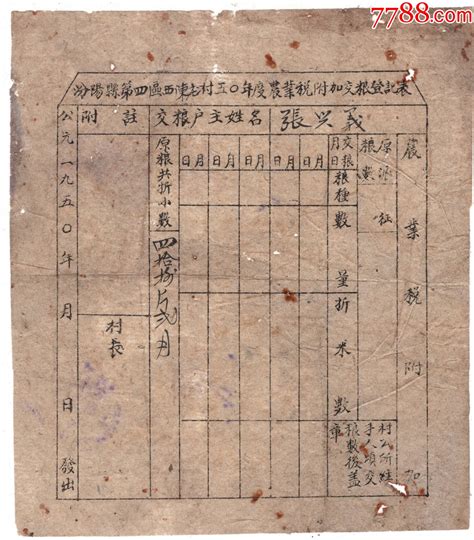 7788.com
汾陽縣第四區西陳家村五〇年度農業稅附加交粮登記表
農業稅附加
交粮户主姓名
張兴義
附註
原派粮數
征
月日
交粮
月日
月日
月日
月日
月日
粮種
數量
折米數
村公所經手人頂交粮數後盖章
原粮共折小數
四拾
斤
村長
公元一九五〇年 月 日發出